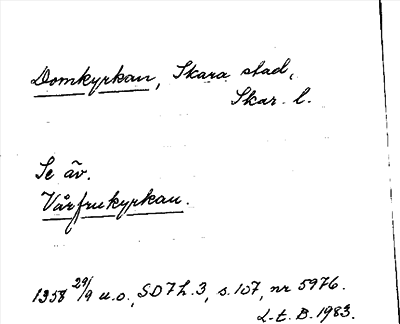 Domkyrkan, Skara stad,
Skar. l.
Se äv.
Vårfrukyrkan.
1358 29/9 u.o., SD7h.3, s.107, nr 5976.
L.t.B. 1983.